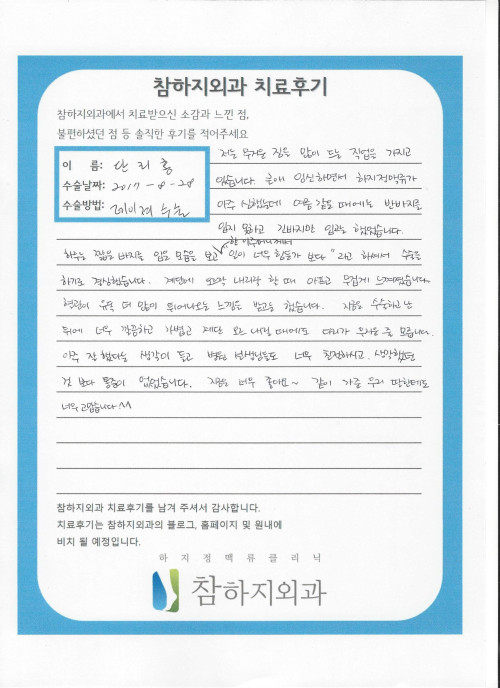 참하지외과 치료후기
참하지외과에서 치료받으신 소감과 느낀 점,
불편하셨던 점 등 솔직한 후기를 적어주세요
이 름: 안리홍
수술날짜: 2017-8-28
수술방법: 레이저 수술
저는 무거운 짐을 많이 드는 직업을 가지고
있습니다. 임신하면서 하지정맥류가
아주 심했는데 여름 같을 때에는 반바지를
입지 못하고 긴바지만 입고는 했었습니다.
하루는 짧은 바지를 입은 모습을 보고 한 아주머니께서 "인생이 너무 힘든가 보다" 라고 하셔서 수술을
하기로 결심했습니다. 계단에 오르락 내리락 할 때 아프고 무겁게 느껴졌습니다.
혈관이 유독 더 많이 튀어나오는 느낌을 받고는 했습니다. 지금은 수술하고 난
뒤에 너무 깔끔하고 가볍고 계단 오르 내릴 때에도 다리가 무거운 줄 모릅니다.
아주 잘 했다는 생각이 들고 병원 선생님들도 너무 친절하시고. 생각했던
것 보다 통증이 없었습니다. 지금은 너무 좋아요~ 같이 가준 우리 딸한테도
너무 고맙습니다 ^^
참하지외과 치료후기를 남겨 주셔서 감사합니다.
치료후기는 참하지외과의 블로그, 홈페이지 및 원내에
비치 될 예정입니다.
하지정맥류클리닉
참하지외과